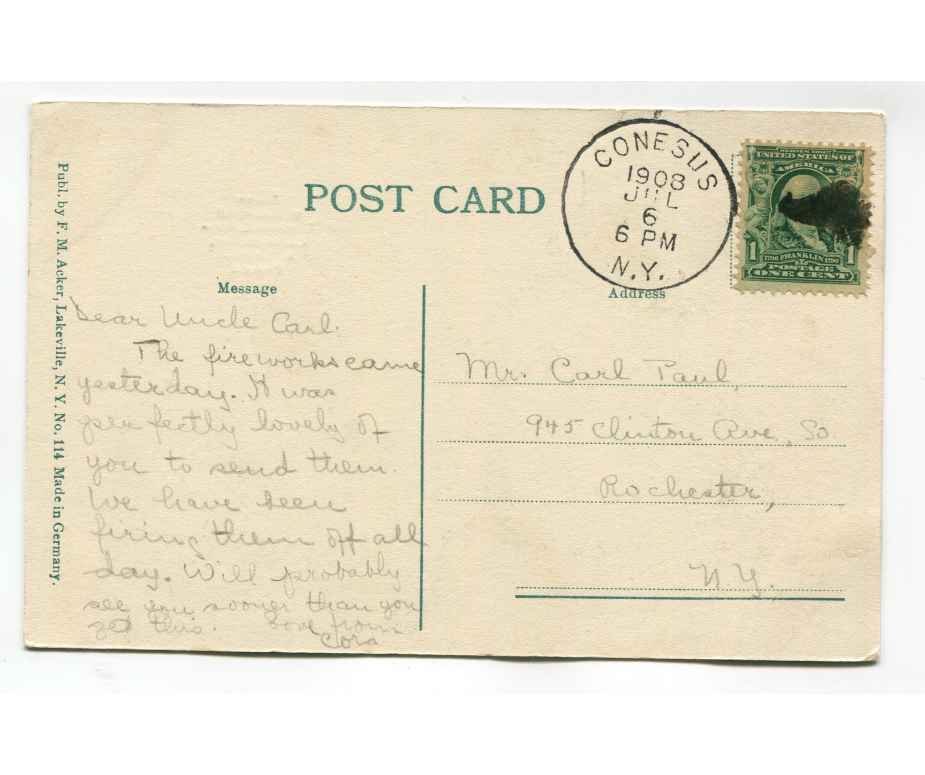 POST CARD
CONESUS
1908
JUL
6
6 PM
N.Y.
SERIES 1902
UNITED STATES OF
AMERICA
1 1
1706 FRANKLIN 1790
POSTAGE
ONE CENT
Publ. by F. M. Acker, Lakeville, N. Y. No. 114 Made in Germany.
Message
Dear Uncle Carl.
The fireworks came
yesterday. It was
perfectly lovely of
you to send them.
We have been
firing them off all
day. Will probably
see you sooner than you
get this. Love from
Cora
Address
Mr. Carl Paul,
945 Clinton Ave, So
Rochester,
N.Y.